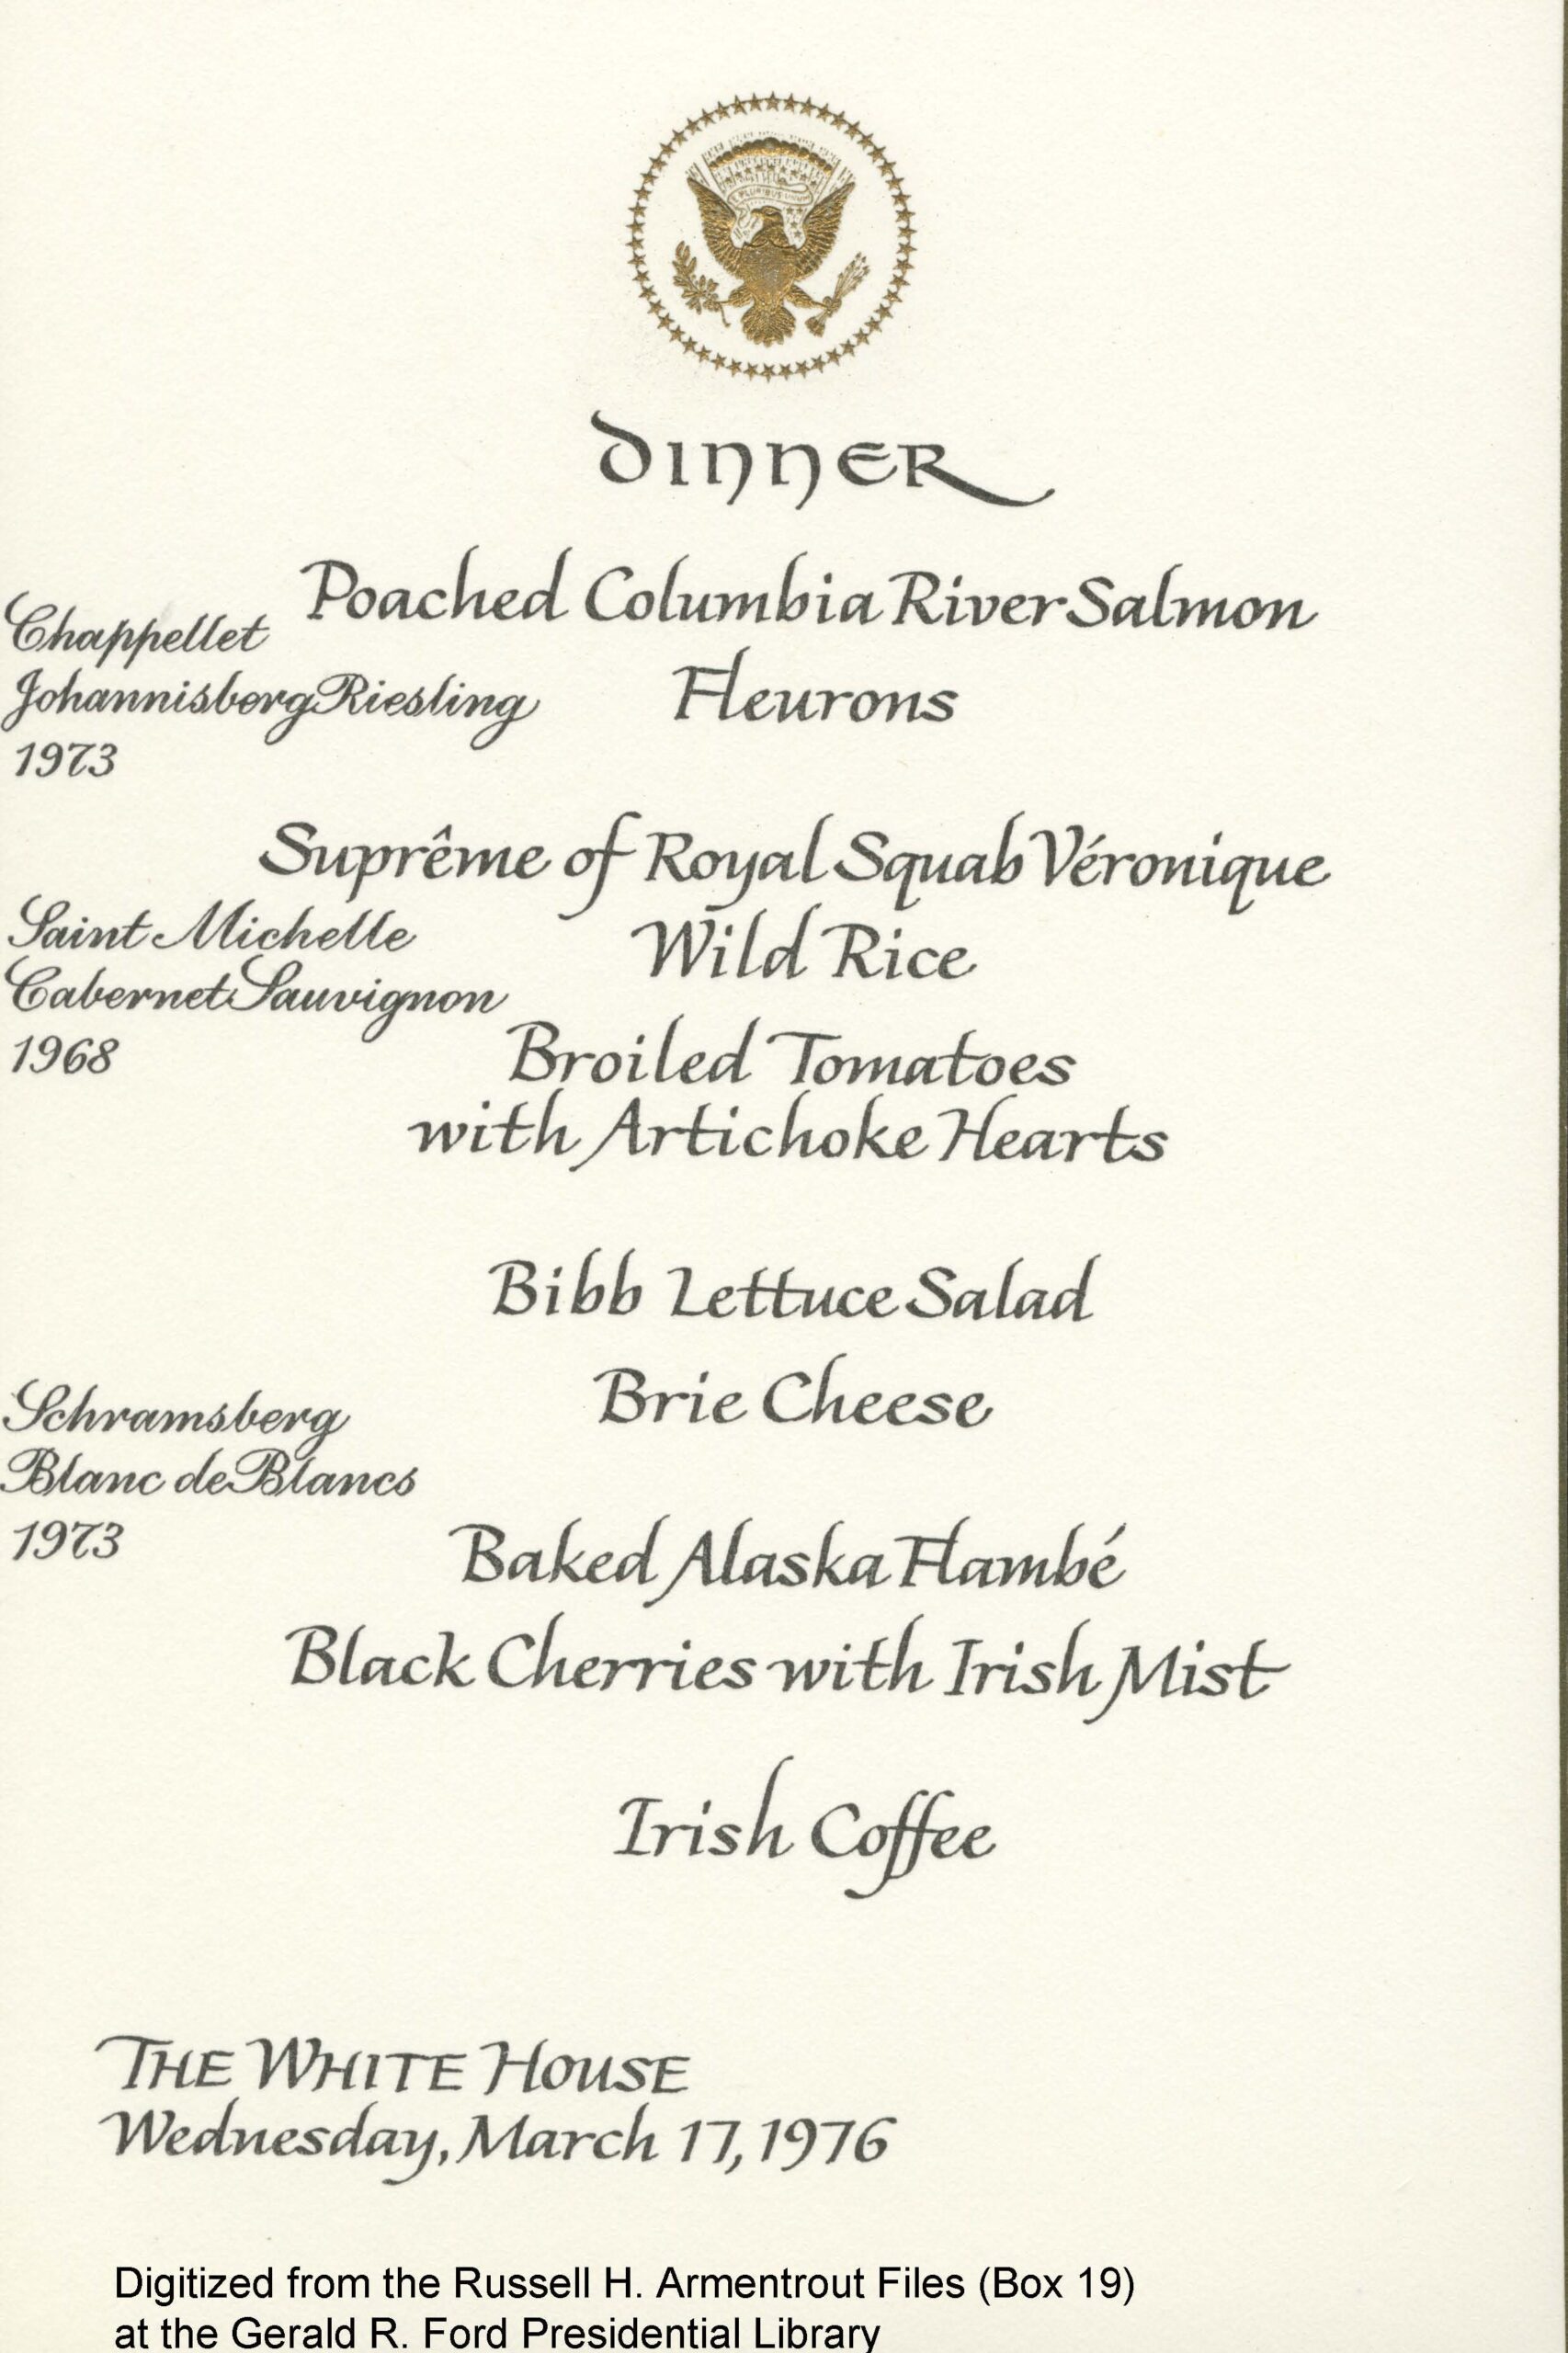 E PLURIBUS UNUM
DINNER
Poached Columbia River Salmon
Fleurons
Chappellet
Johannisberg Riesling
1973
Suprême of Royal Squab Véronique
Wild Rice
Broiled Tomatoes
with Artichoke Hearts
Saint Michelle
Cabernet Sauvignon
1968
Bibb Lettuce Salad
Brie Cheese
Schramsberg
Blanc de Blancs
1973
Baked Alaska Flambé
Black Cherries with Irish Mist
Irish Coffee
THE WHITE HOUSE
Wednesday, March 17, 1976
Digitized from the Russell H. Armentrout Files (Box 19)
at the Gerald R. Ford Presidential Library